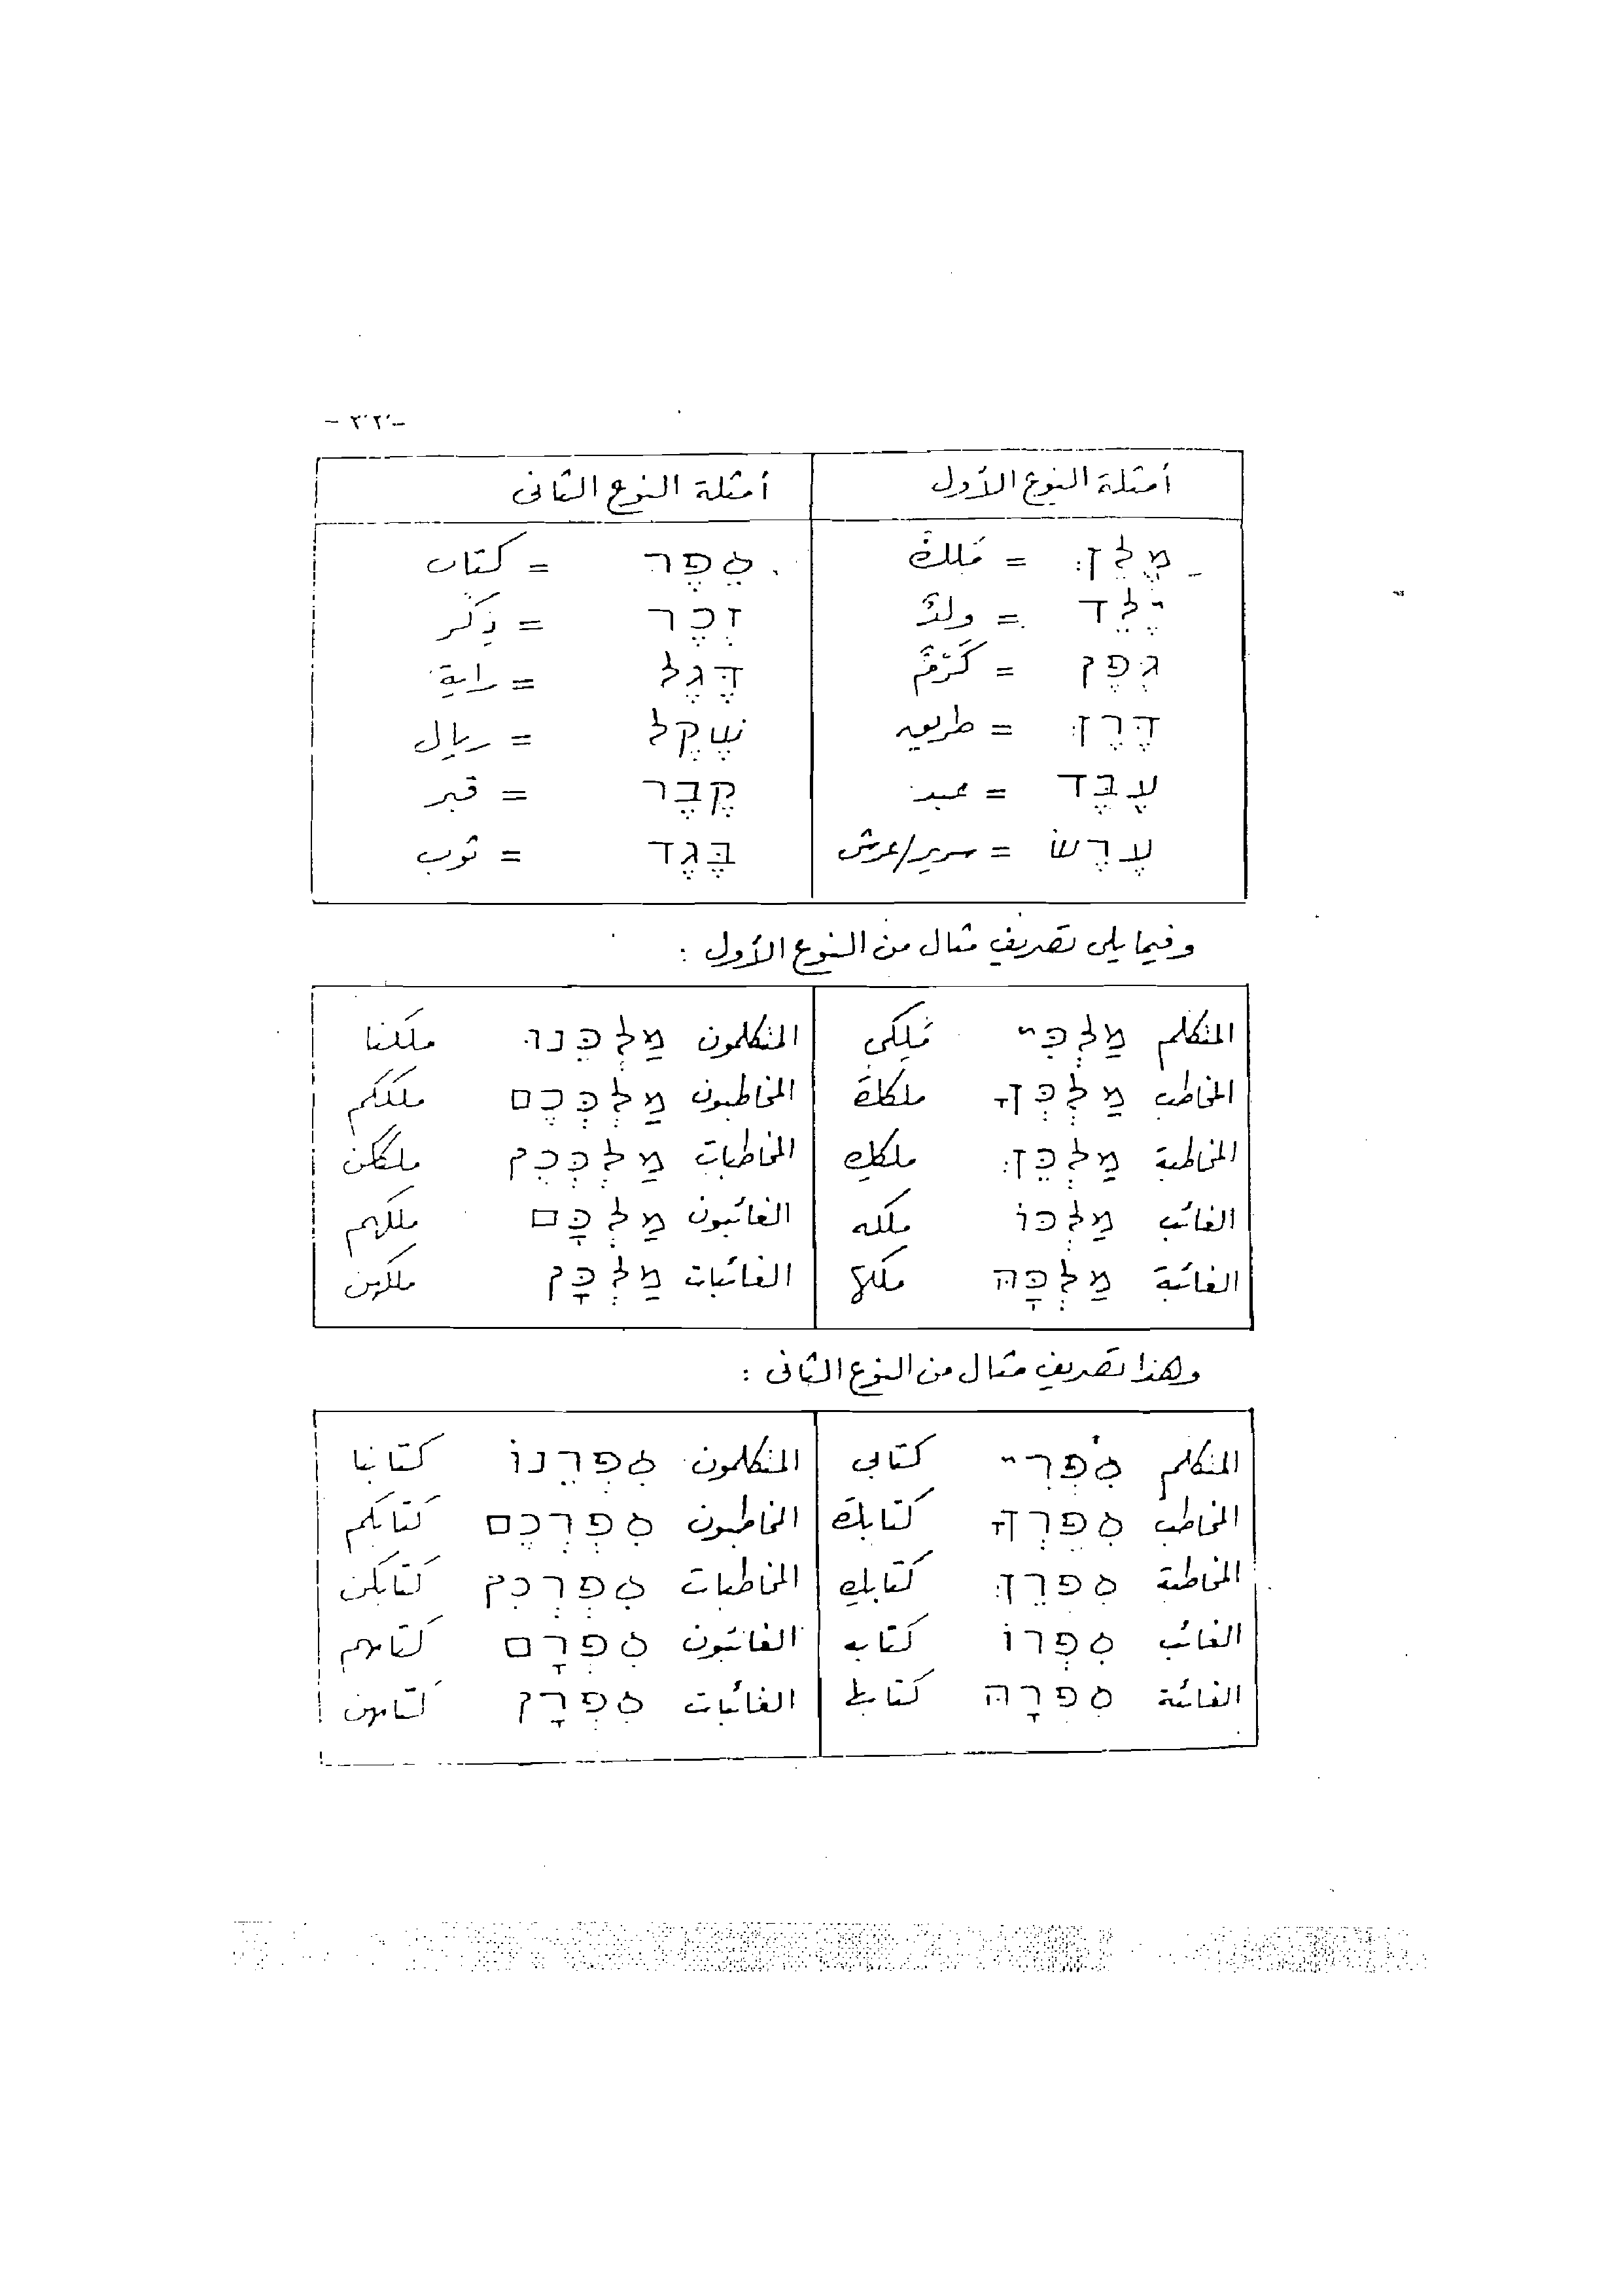 أمثلة النوع الأول أمثلة النوع الثانى
מֶלֶךְ = مَلِكٌ סֵפֶר = كتاب
יֶלֶד = ولدٌ זֵכֶר = ذِكر
גֶפֶן = كَرْمٌ דֶּגֶל = راية
דֶּרֶךְ = طريق שֶׁקֶל = ريال
עֶבֶד = عبد קֶבֶר = قبر
עֶרֶשׂ = سرير/عرش בֶּגֶד = ثوب
وفيما يلى تصريف مثال من النوع الأول :
المتكلم מַלְכִּי مَلِكى المتكلمون מַלְכֵּנוּ ملكنا
المخاطب מַלְכְּךָ ملككَ المخاطبون מַלְכְּכֶם ملككم
المخاطبة מַלְכֵּךְ ملككِ المخاطبات מַלְכְּכֶן ملككن
الغائب מַלְכּוֹ ملكه الغائبون מַלְכָּם ملكهم
الغائبة מַלְכָּהּ ملكها الغائبات מַלְכָּן ملكهن
وهذا تصريف مثال من النوع الثانى :
المتكلم סִפְרִי كتابى المتكلمون סִפְרֵנוֹ كتابنا
المخاطب סִפְרְךָ كتابكَ المخاطبون סִפְרְכֶם كتابكم
المخاطبة סִפְרֵךְ كتابكِ المخاطبات סִפְרְכֶן كتابكن
الغائب סִפְרוֹ كتابه الغائبون סִפְרָם كتابهم
الغائبة סִפְרָהּ كتابها الغائبات סִפְרָן كتابهن